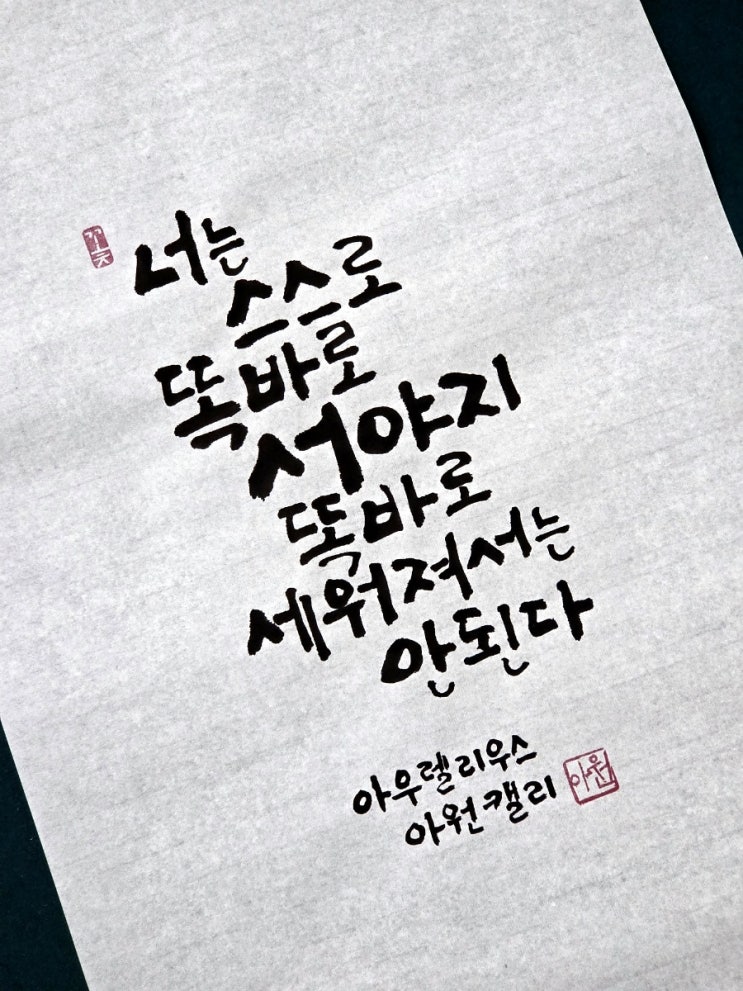 꽃
너는
스스로
똑바로
서야지
똑바로
세워져서는
안된다
아우렐리우스
아원캘리
아원